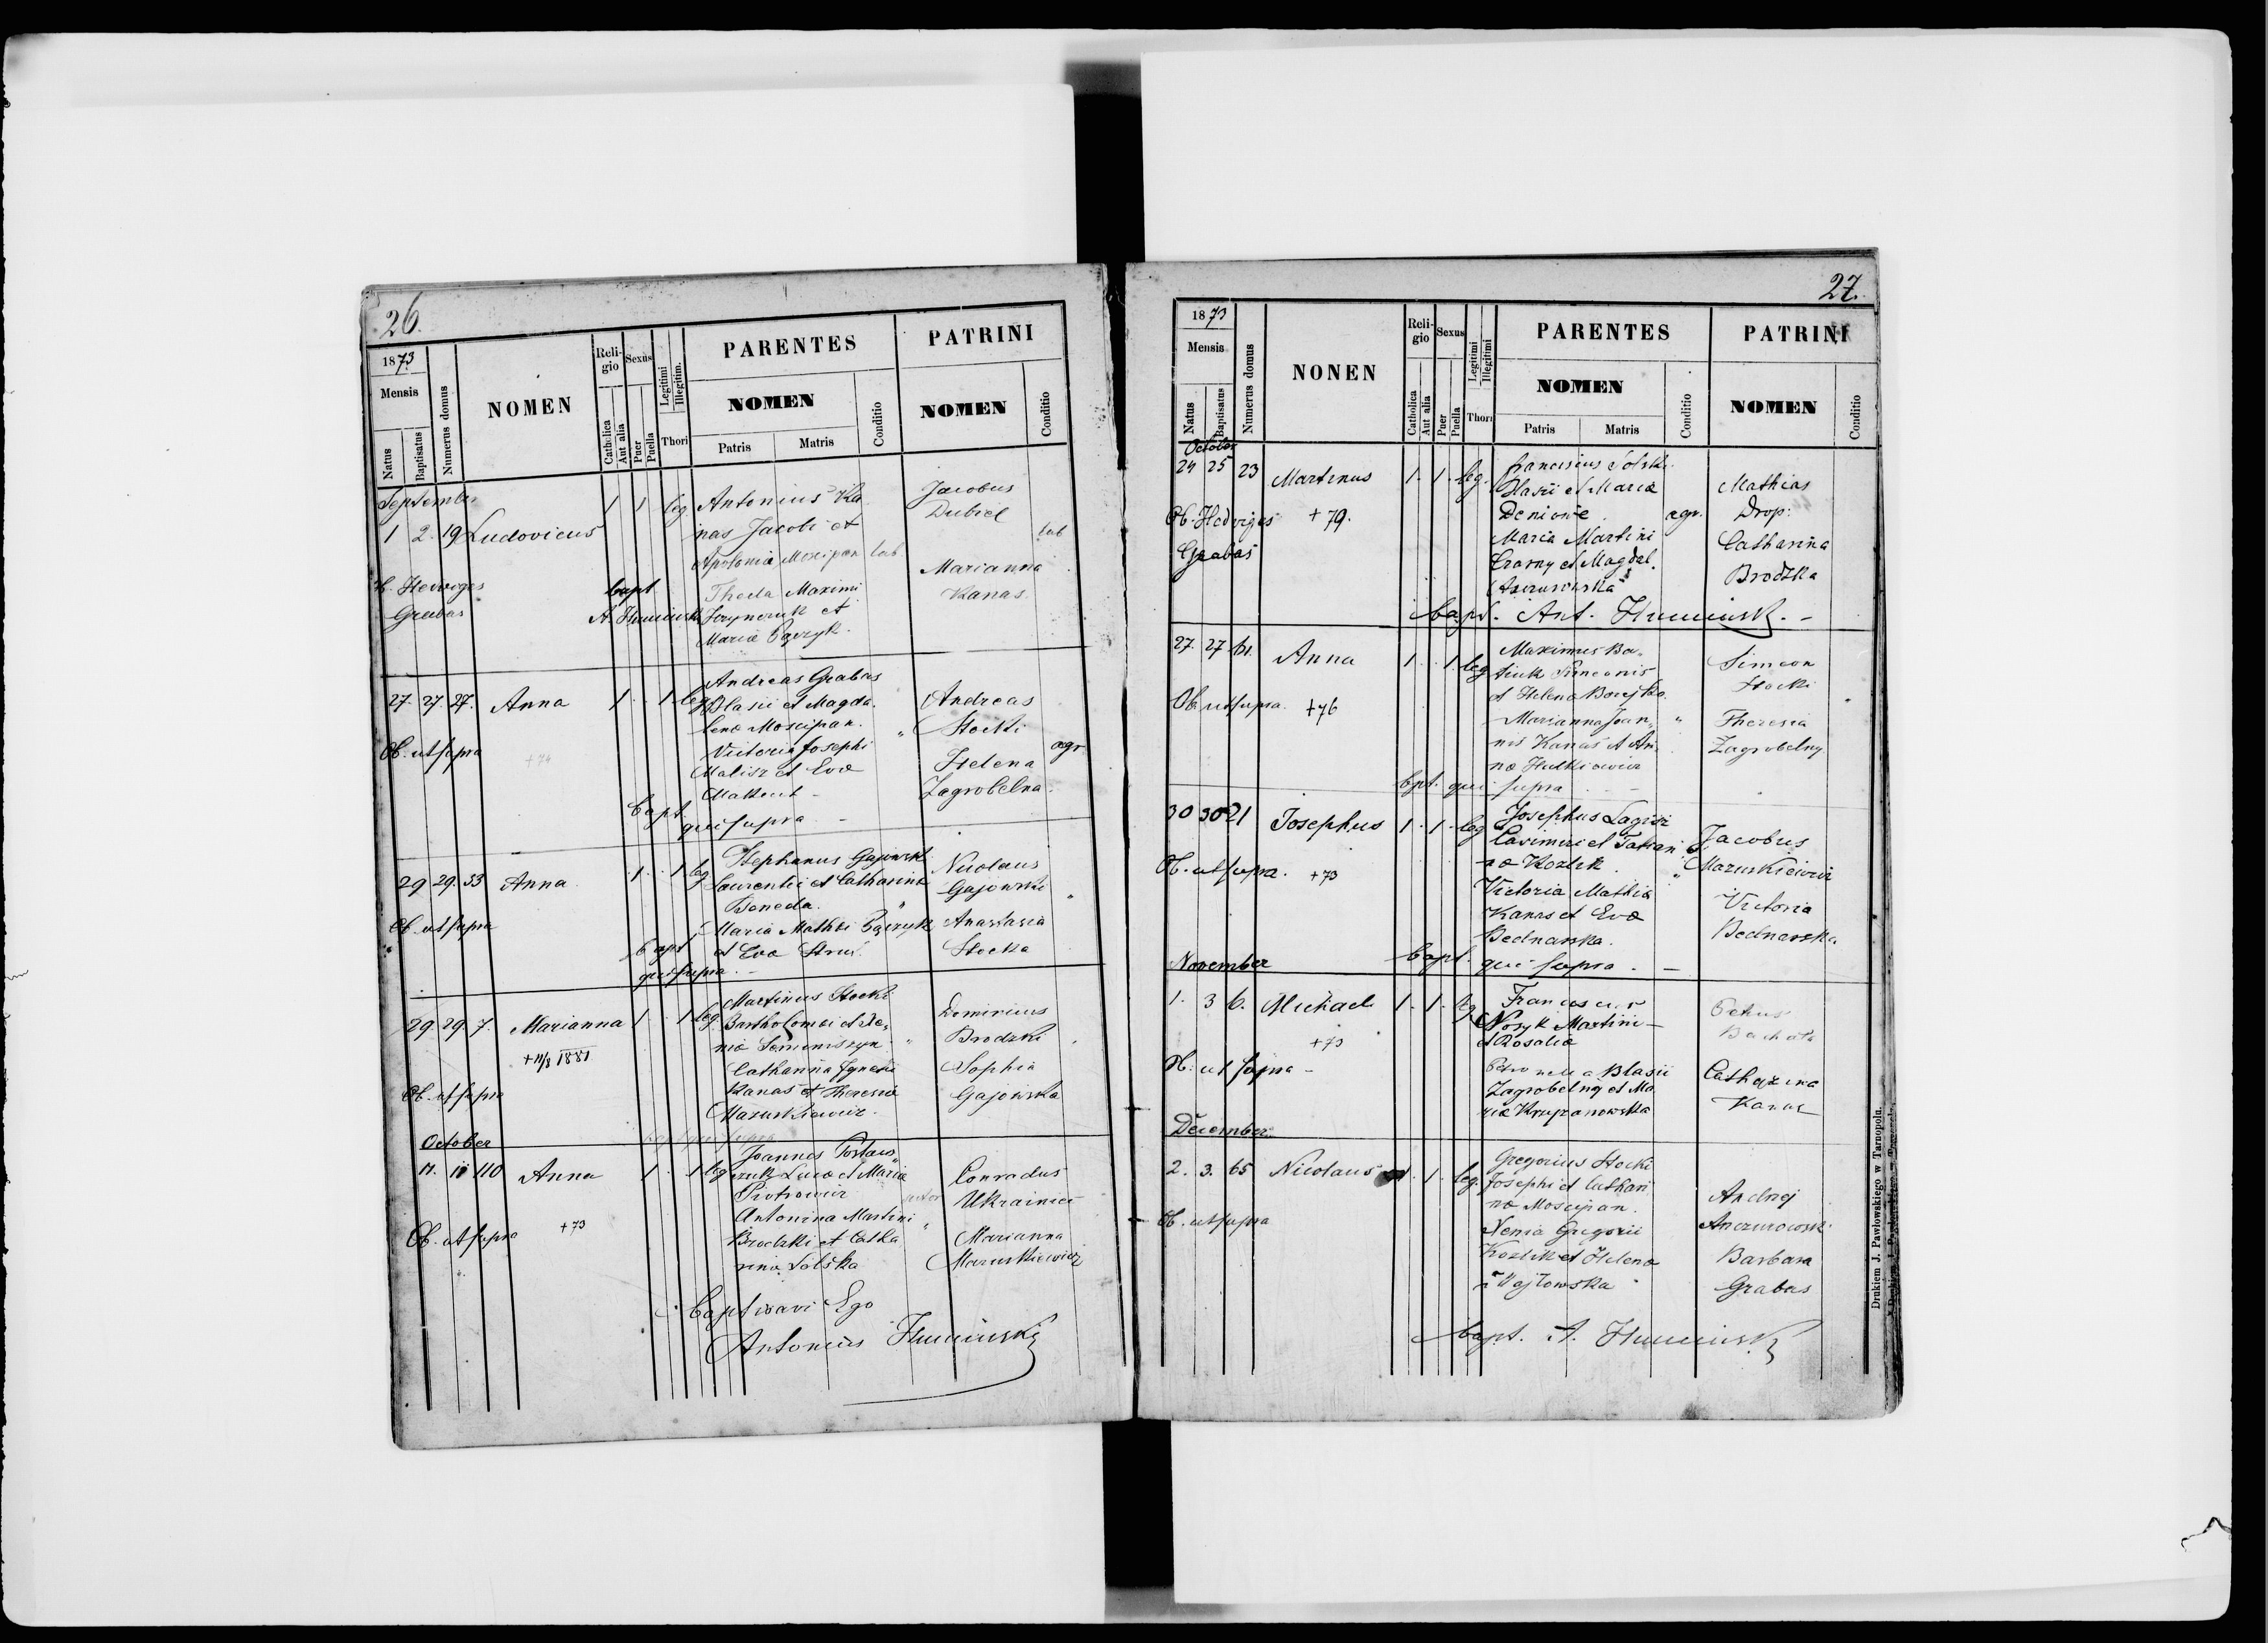 26.
1873
Mensis
Natus
Baptisatus
Numerus domus
NOMEN
Religio
Catholica
Aut alia
Sexus
Puer
Puella
Legitimi
Illegitim.
Thori
PARENTES
NOMEN
Patris
Matris
Conditio
PATRINI
NOMEN
Conditio
September
1 2 19 Ludovicus 1 1 leg
Antonius Ka
nas Jacobi et
Apolonia Moscipan lab
Thecla Maximi
et
Maria
Jacobus
Dubiel
lab
Marianna
Kanas
Ob. Hedwiges
Grabas
bapt
A. Huminski
27. 27. 27. Anna 1 1 leg
Andreas Grabas
Blasii et Magda.
lena Moscipan.
Victoria Josephi
Malisz et Eva
Andreas
Stocki
Helena agr
Zagrobelna.
Ob. ut supra +74
bapt.
qui supra –
29 29. 33 Anna 1 1 leg
Stephanus Gajowski
Laurentii et Catharina
Boneda.
Maria Mathei
et Eva
Nicolaus
Gajowski
Anastasia
Stocka
Ob. ut supra
bapt
qui supra. –
29. 29. 7. Marianna 1 1 leg
+11/8 1881
Martinus Stocki
Bartholomei et Xe„
nia
Catharina Ignatii
Kanas et Theresia
Mazurkiewicz.
Dominicus
Brodzki
Sophia
Gajowska
Ob. ut supra
bapt qui supra
October
11. 11 110 Anna 1 1 leg
Joannes Postaw„
czuk Luca et Maria
Piotrowicz
Antonina Martini
Brodzki et Catha
rina Solska
Conradus
Ukrainiec
Marianna
Mazurkiewicz
Ob. ut supra +73
Baptisavi Ego
Antonius Huminski
27.
1873
Mensis
Natus
Baptisatus
Numerus domus
NONEN
Religio
Catholica
Aut alia
Sexus
Puer
Puella
Legitimi
Illegitimi
Thori
PARENTES
NOMEN
Patris
Matris
Conditio
PATRINI
NOMEN
Conditio
October
24 25 23 Martinus 1. 1. leg.
Franciscus Solski
Blasii et Maria
agr.
Maria Martini
Czarny et Magdal.
Mathias
Drop:
Catharina
Brodzka
Ob. Hedviges +79.
Grabas
bapt. Ant. Huminski. –
27. 27. 61. Anna 1. 1. leg
Maximus Ba„
tiuk Simeonis
et Helena
Marianna Joan„
nis Kanas et An„
na
Simeon
Stocki
Theresia
Zagrobelny
Ob. ut supra. +76
bpt. qui supra
30 30 21 Josephus 1. 1. leg
Josephus
Casimiri et Tatian
na Kozlik
Victoria Mathia
Kanas et Eva
Bednarska.
Jacobus
Mazurkiewicz
Victoria
Bednarska.
Ob. ut supra. +73
bapt. qui supra. –
November
1. 3 6. Michael 1. 1. leg
Franciscus
Nosyk Martini –
et Rosalia
Petronella Blasii
Zagrobelny et Ma.
ria Krupanowska
Petrus
Catharina
Kanas
+73
Ob: ut supra –
December:
2. 3. 65 Nicolaus 1. leg.
Gregorius Stocki
Josephi et Cathari
na Moscipan.
Xenia Gregorii
Kozlik et Helena
Wajtowska
Andrej
Barbara
Grabas
Ob. ut supra
bapt. A. Huminski
Drukiem J. Pawłowskiego w Tarnopolu.